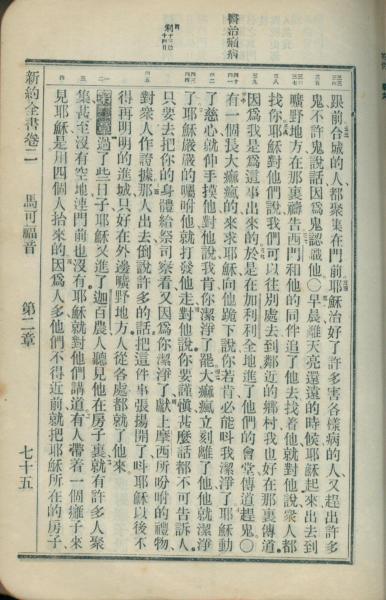 醫治癱病
跟前合城的人都聚集在門前耶穌治好了許多害各樣病的人又趕出許多
鬼不許鬼說話因為鬼認識他〇早晨離天亮還遠的時候耶穌起來出去到
曠野地方在那裏禱告西門和他的同伴追了他去找着他就對他說衆人都
找你耶穌對他們說我們可以往別處去到鄰近的鄉村我也好在那裏傳道
因為我是為這事出來的於是在加利利全地進了他們的會堂傳道趕鬼〇
有一個長大痲瘋的來求耶穌向他跪下說你若肯必能呌我潔淨了耶穌動
了慈心就伸手摸他對他說我肯你潔淨了罷大痲瘋立刻離了他他就潔淨
了耶穌嚴嚴的囑咐他就打發他走對他說你要謹愼甚麼話都不可告訴人
只要去把你的身體給祭司察看又因為你潔淨了獻上摩西所吩咐的禮物
對衆人作證據那人出去倒說許多的話把這件事張揚開了呌耶穌以後不
得再明明的進城只好在外邊曠野地方人從各處都就了他來
過了些日子耶穌又進了迦百農人聽見他在房子裏就有許多人聚
集甚至沒有空地連門前也沒有耶穌就對他們講道有人帶着一個癱子來
見耶穌是用四個人抬來的因為人多他們不得近前就把耶穌所在的房子
新約全書卷二 馬可福音 第二章 七十五